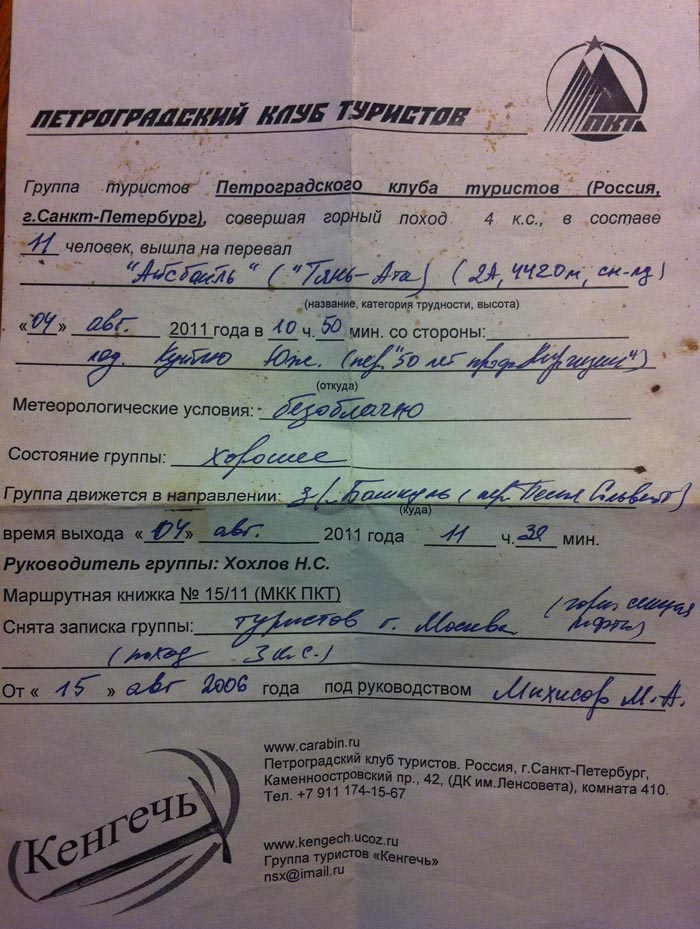 ПЕТРОГРАДСКИЙ КЛУБ ТУРИСТОВ
ПКТ
Группа туристов Петроградского клуба туристов (Россия,
г.Санкт-Петербург), совершая горный поход 4 к.с., в составе
11 человек, вышла на перевал
"Айсбайль" ("Тянь-Ата) (2А, 4420м, сн-лд)
(название, категория трудности, высота)
«04» авг. 2011 года в 10 ч. 50 мин. со стороны:
Юж. (пер. "50 лет Киргизии")
(откуда)
Метеорологические условия: безоблачно
Состояние группы: хорошее
Группа движется в направлении: (пер.
(куда)
время выхода «04» авг. 2011 года 11 ч. 32 мин.
Руководитель группы: Хохлов Н.С.
Маршрутная книжка № 15/11 (МКК ПКТ)
Снята записка группы: туристов г. Москва
(поход 3 к.с.)
От « 15 » авг 2006 года под руководством М.А.
www.carabin.ru
Петроградский клуб туристов. Россия, г.Санкт-Петербург,
Каменноостровский пр., 42, (ДК им.Ленсовета), комната 410.
Тел. +7 911 174-15-67
Кенгечь
www.kengech.ucoz.ru
Группа туристов «Кенгечь»
nsx@imail.ru